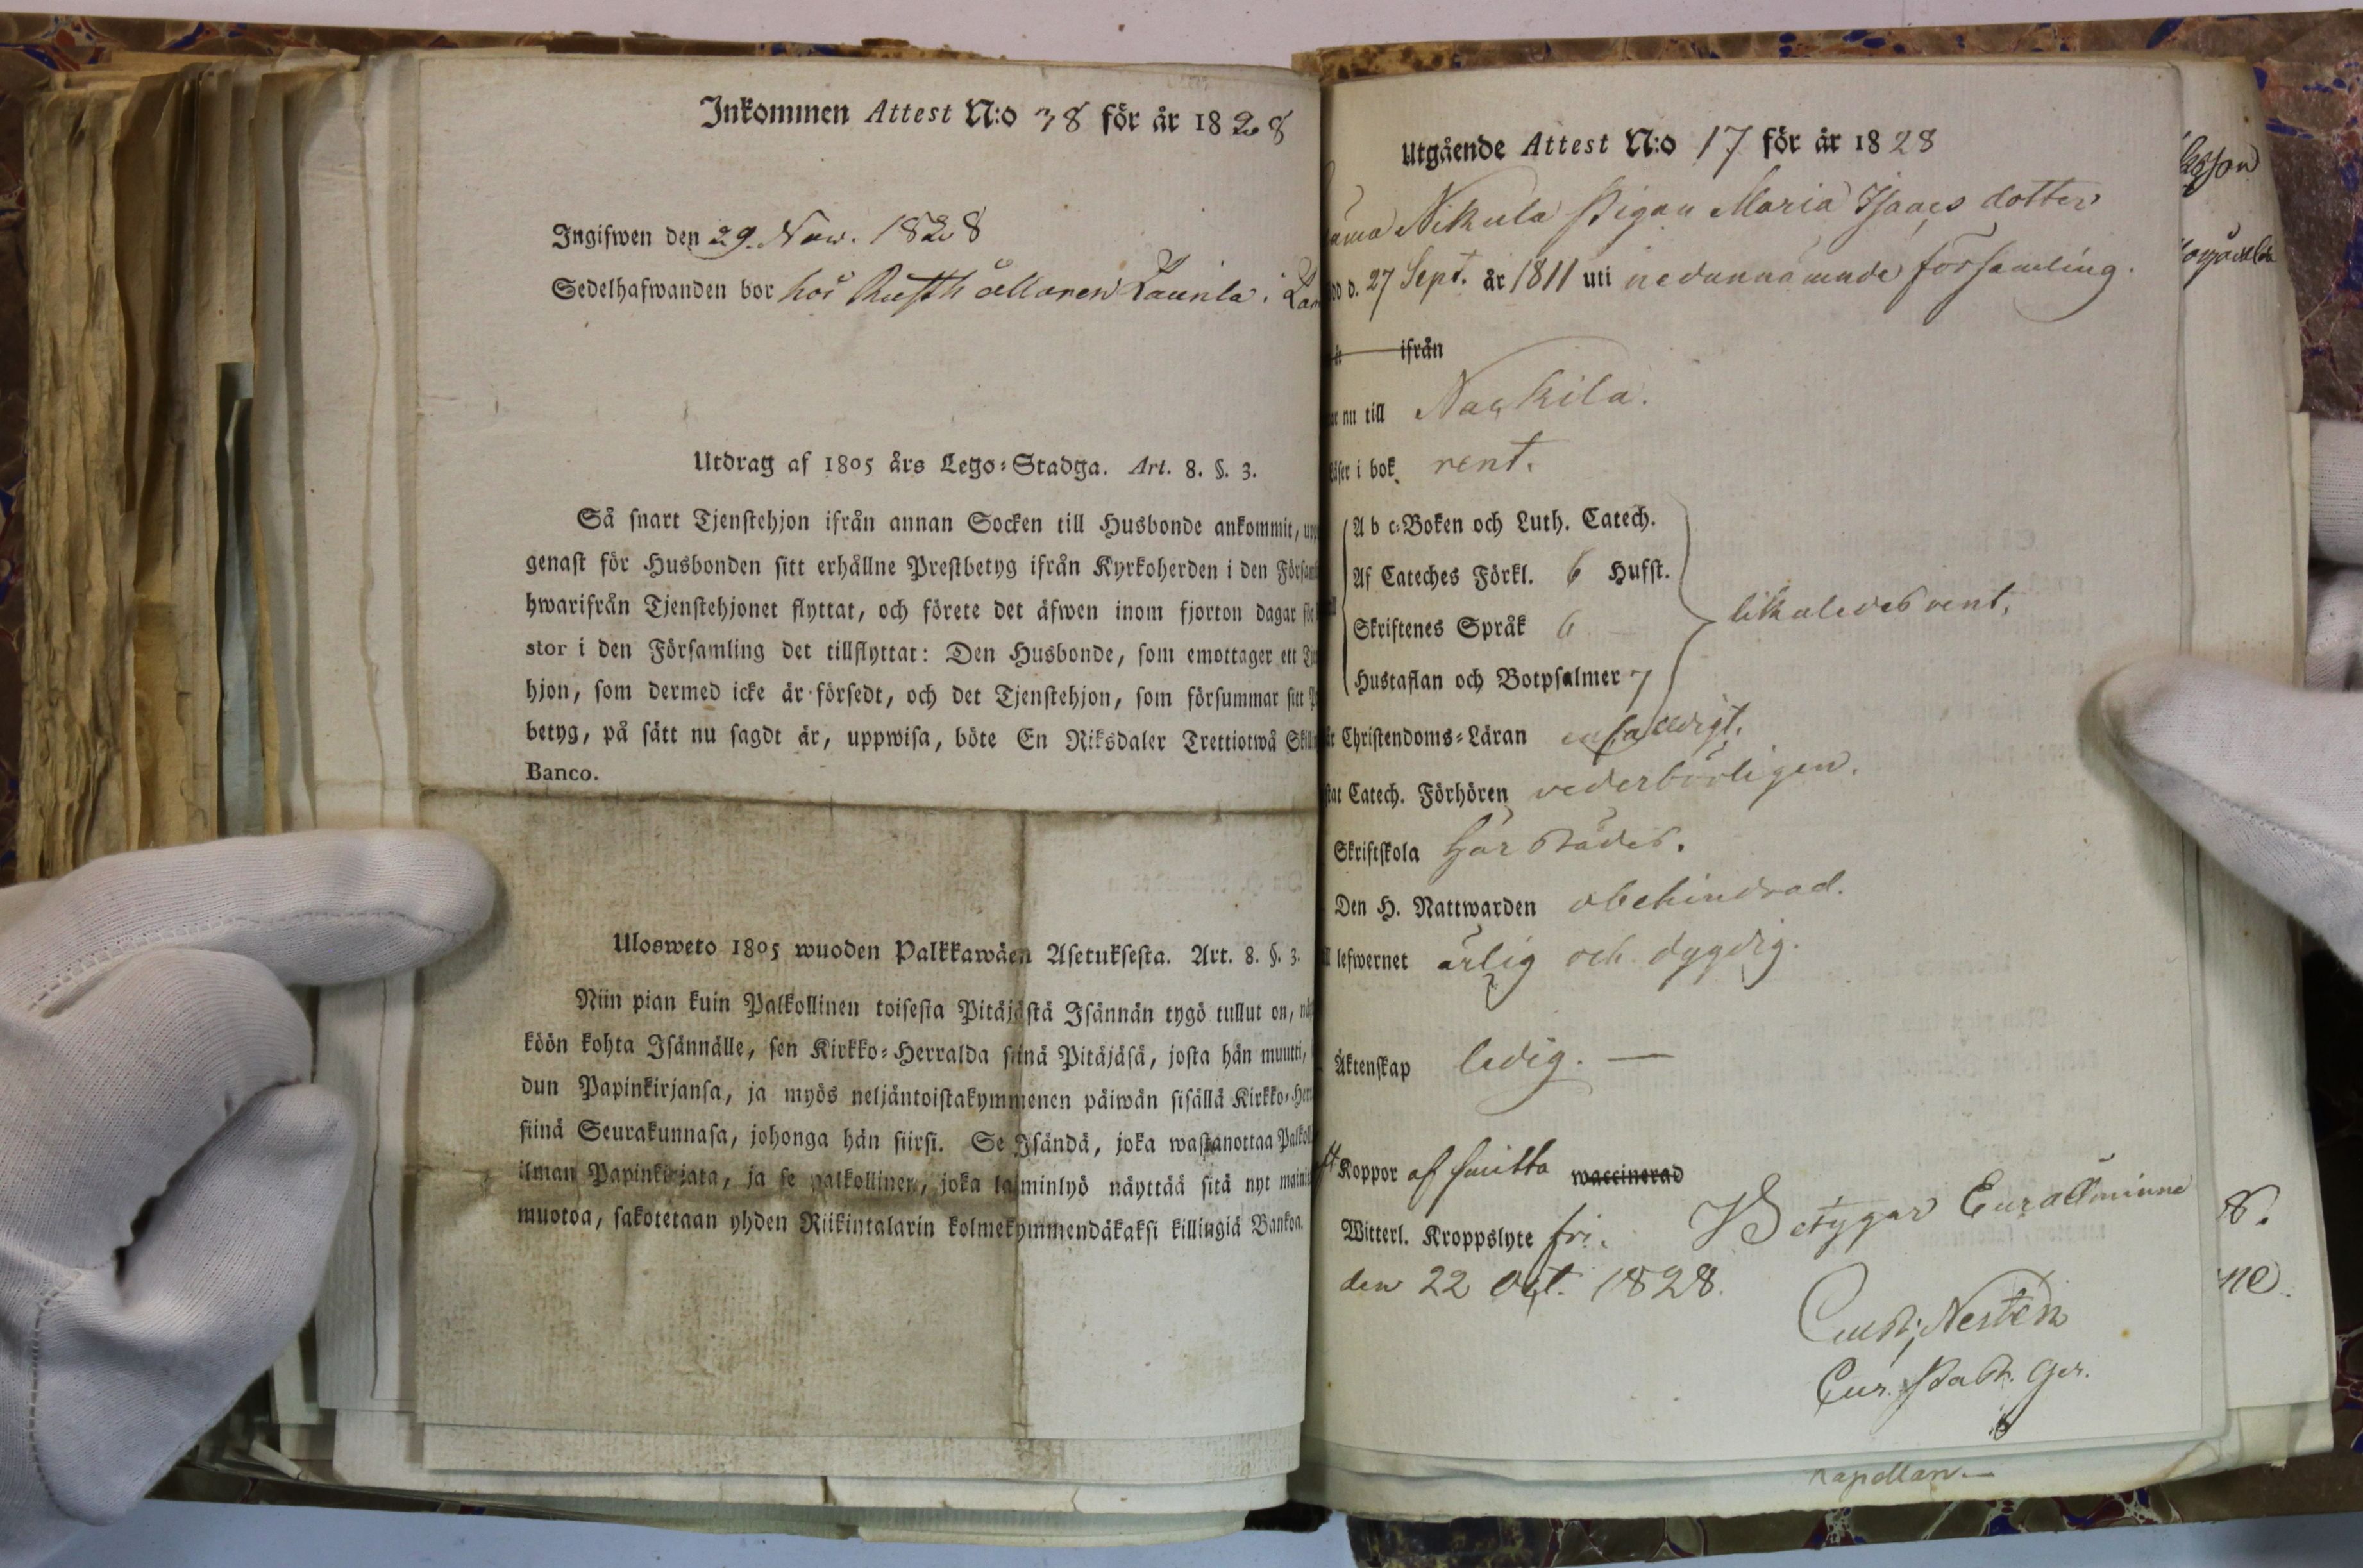 Inkommen Attest N:o 38 för år 1828
Ingifwen den 29. Nov. 1828
Sedelhafwanden bor hos Rusthållaren Launla. i
Utdrag af 1805 års Lego-Stadga. Art. 8. §. 3.
Så snart Tjenstehjon ifrån annan Socken till Husbonde ankommit,
genast för Husbonden sitt erhållne Prestbetyg ifrån Kyrkoherden i den
hwarifrån Tjenstehjonet flyttat, och förete det äfwen inom fjorton dagar
stor i den Församling det tillflyttat: Den Husbonde, som emottager ett
hjon, som dermed icke är försedt, och det Tjenstehjon, som försummar sitt
betyg, på sätt nu sagdt är, uppwisa, böte En Riksdaler Trettiotwå
Banco.
Ulosweto 1805 wuoden Palkkawäen Asetuksesta. Art. 8. §. 3.
Niin pian kuin Palkollinen toisesta Pitäjästä Isännän tygö tullut on,
köön kohta Isännälle, sen Kirkko-Herralda siinä Pitäjäsä, josta hän muutti,
dun Papinkirjansa, ja myös neljäntoistakymmenen päiwän sisällä Kirkko-
siinä Seurakunnasa, johonga hän siirsi. Se Isändä, joka wastanottaa
ilman Papinkirjata, ja se palkollinen, joka laiminlyö näyttää sitä nyt
muotoa, sakotetaan yhden Riikintalarin kolmekymmendäkaksi killingiä Bankoa.
Utgående Attest N:o 17 för år 1828
Nikula Pigan Maria Isaacs dotter
d. 27 Sept. år 1811 uti nedannämnde församling.
ifrån
nu till Nackila.
i bok rent.
A b c-Boken och Luth. Catech.
Af Cateches Förkl. 6 Hufst.
Skriftenes Språk 6
Hustaflan och Botpsalmer 7
likaledes rent.
Christendoms-Läran enfaldigt.
Catech. Förhören vederbörligen.
Skriftskola härstädes.
Den H. Nattwarden obehindrad.
lefwernet ärlig och dygdig.
Äktenskap ledig. —
Koppor af smitta waccinerad
Witterl. Kroppslyte fri. Betygar Euraåminne
den 22 Oct. 1828.
Kapellan.—